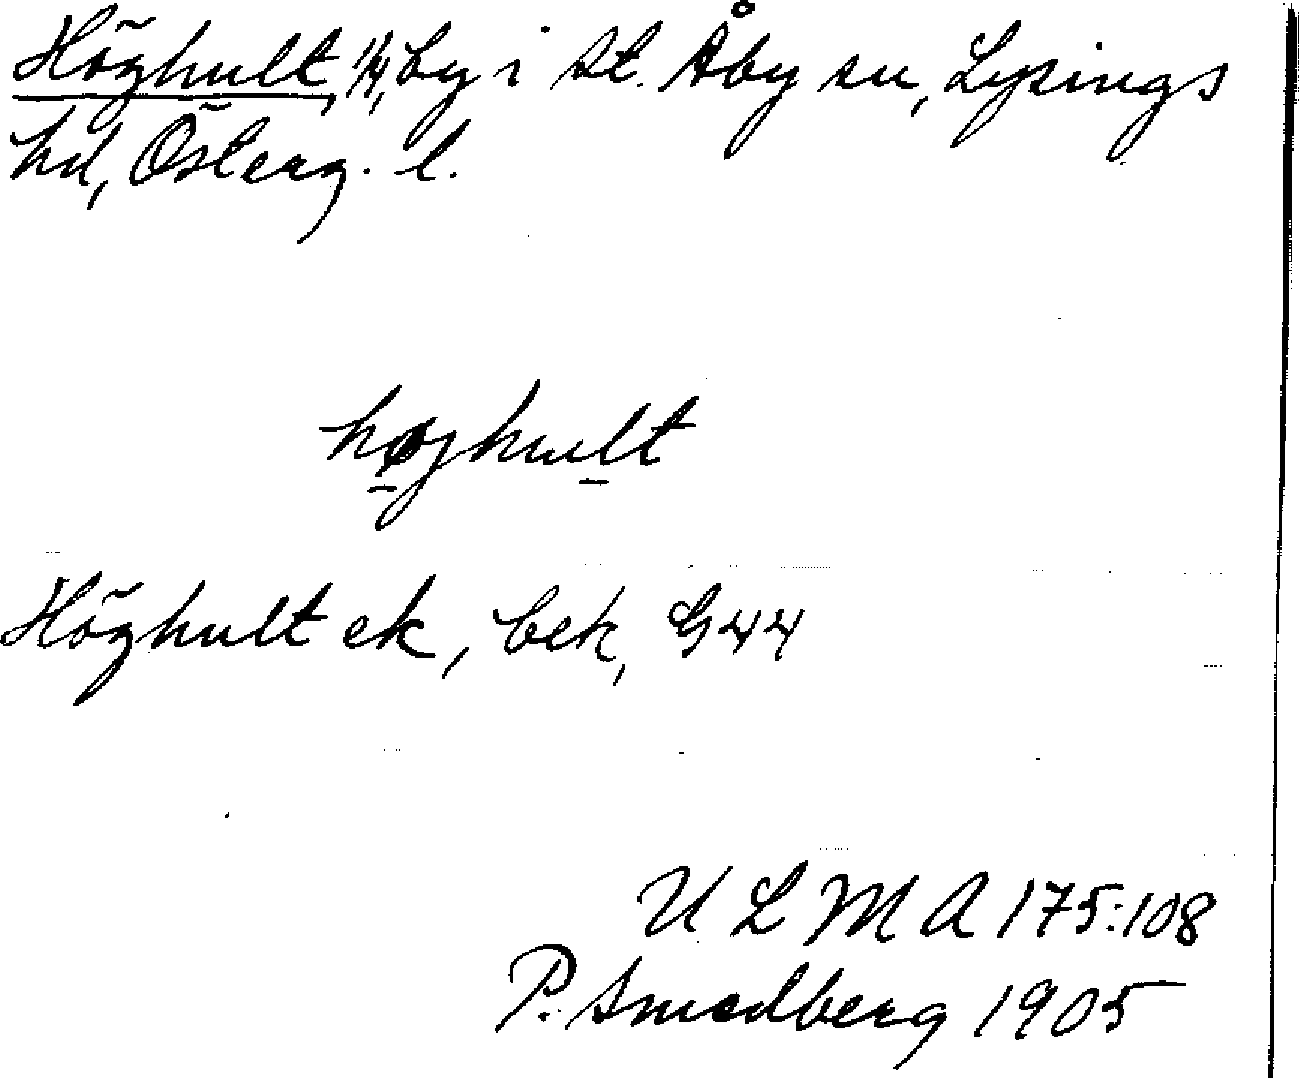 Höghult, 1/4, by i St. Åby sn, Lysings
hd, Österg. l.
højhult
Höghult ek, bek, G44
U L M A 175:108
P. Smedberg 1905